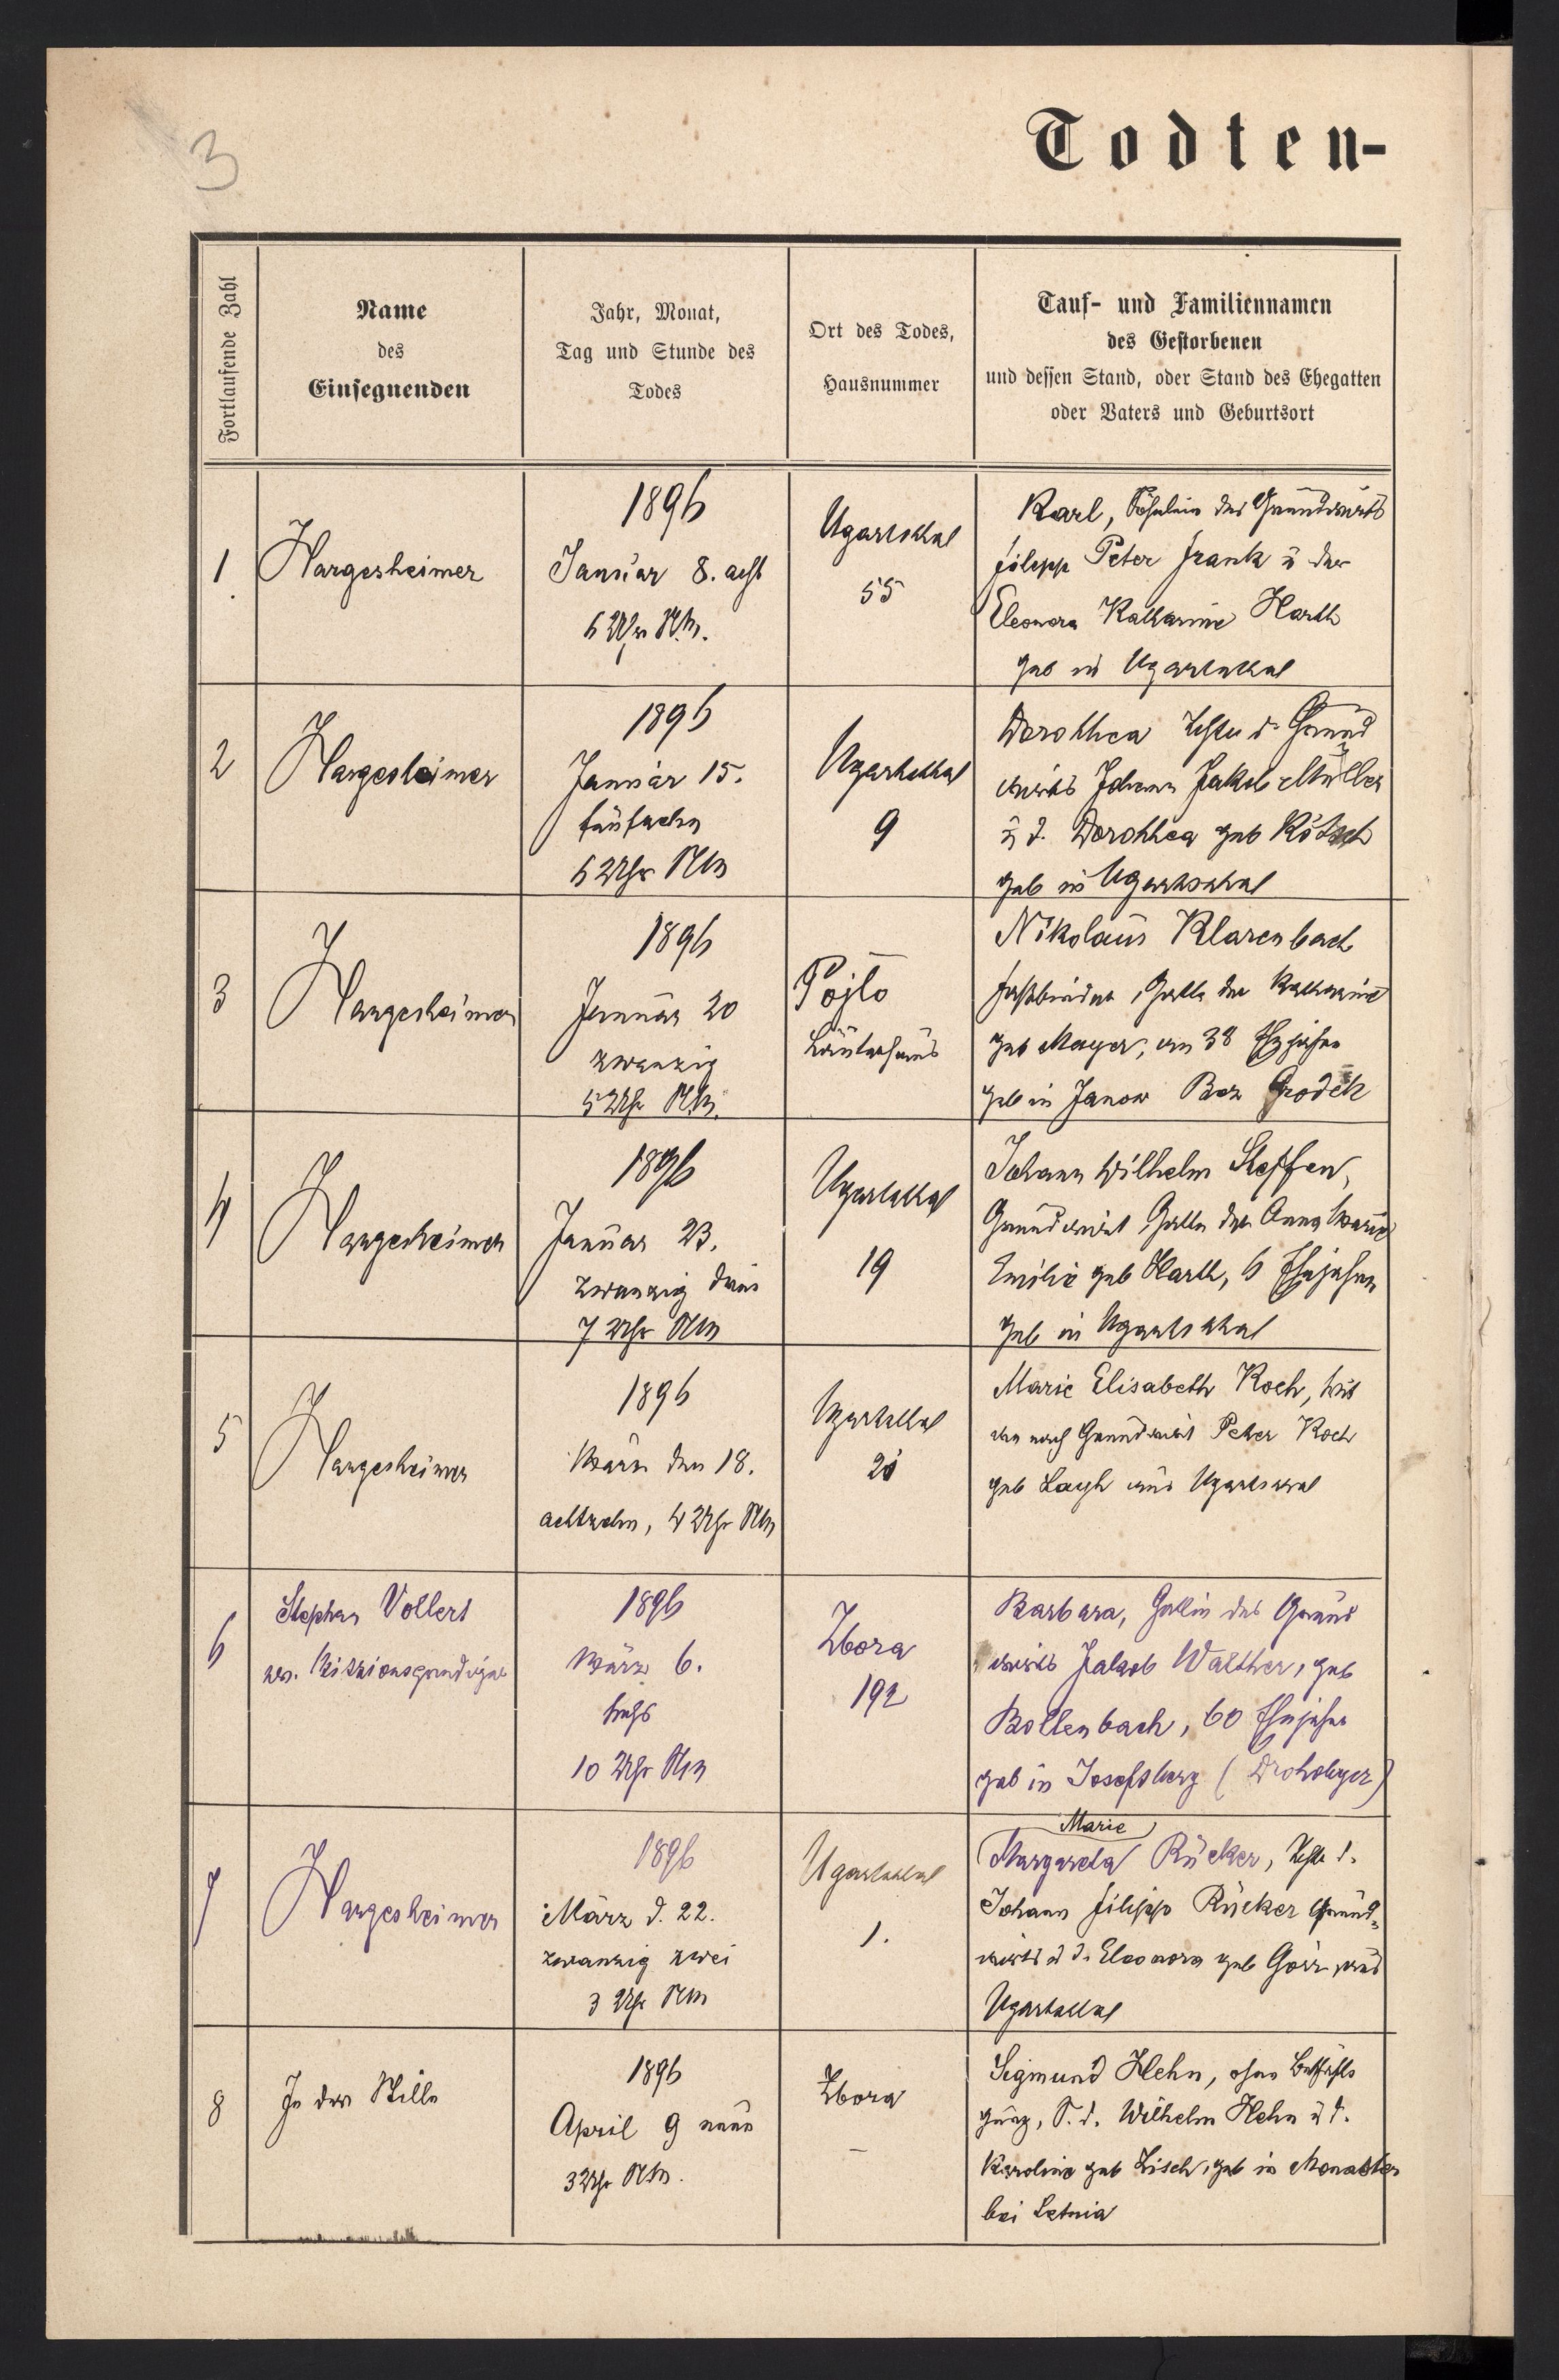 3
Todten-
Fortlaufende Zahl
Name
des
Einsegnenden
Jahr, Monat,
Tag und Stunde des
Todes
Ort des Todes,
Hausnummer
Tauf- und Familiennamen
des Gestorbenen
und dessen Stand, oder Stand des Ehegatten
oder Vaters und Geburtsort
1
Hargesheimer
1896
Januar 8. acht
6 Uhr Nm.
Ugartsthal
55
Karl, Söhnlein des Grundwirts
Filipp Peter Frank u der
Eleonora Katharine Harth
geb in Ugartsthal
2
Hargesheimer
1896
Januar 15.
fünfzehn
6 Uhr Nm
Ugartsthal
9
Dorothea d. Grund
wirts Johann Jakob Müller
u d. Dorothea geb Kötsch
geb in Ugartsthal
3
Hargesheimer
1896
Januar 20
zwanzig
5 Uhr Nm.
Pojlo
Nikolaus Klarenbach
Faßbinder, Gatte der Katharine
geb Mayer, 38 Ehejahre
geb in Janow Bez Grodek
4
Hargesheimer
1896
Januar 23.
zwanzig drei
7 Uhr Nm
Ugartsthal
19
Johann Wilhelm Steffen,
Grundwirt, Gatte der Anna Marie
Emilie geb Harth, 6 Ehejahre
geb in Ugartsthal
5
Hargesheimer
1896
März den 18.
achtzehn, 4 Uhr Nm
Ugartsthal
Marie Elisabeth Koch, Wit
we nach Grundwirt Peter Koch
geb aus Ugartsthal
6
Stephan Vollert
ev.
1896
März 6.
sechs
10 Uhr Nm
Zbora
192
Barbara, Gattin des Grund
wirts Jakob Walther, geb
Bollenbach, 60 Ehejahre
geb in Josefsberg (Drohobycz)
7
Hargesheimer
1896
März d. 22.
zwanzig zwei
3 Uhr Nm
Ugartsthal
1.
Marie
Margareta Rücker, d.
Johann Filipp Rücker Grund-
wirts u d. Eleonora geb Görz aus
Ugartsthal
8
In der Stille
1896
April 9 neun
3 Uhr Nm.
Zbora
–
Sigmund Hehn, ohne
S. d. Wilhelm Hehn u d.
Karoline geb Lisch, geb in Monaster
bei Letnia